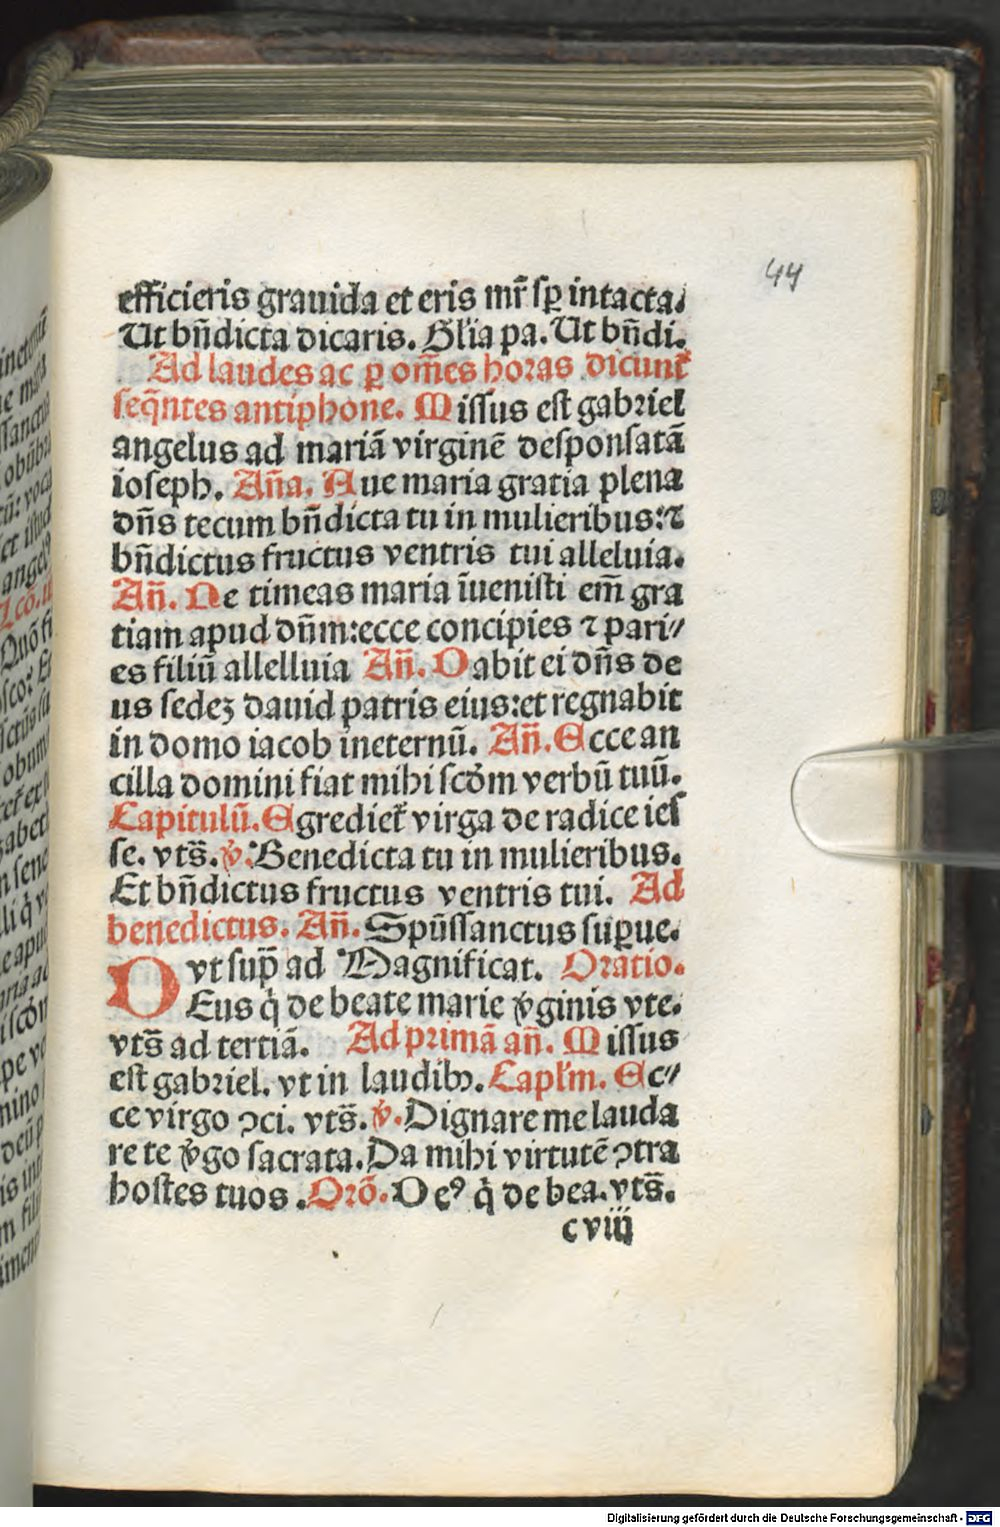 44
efficieris grauida et eris mr̄ sꝑ intacta.
Ut bn̄dicta dicaris. Gl'ia pa. Ut bn̄di.
Ad laudes ac ꝑ om̄es horas dicunt᷑
seq̄ntes antiphone. Missus est gabriel
angelus ad mariā virginē desponsatā
ioseph. An̄a. Aue maria gratia plena
dn̄s tecum bn̄dicta tu in mulieribus: ⁊
bn̄dictus fructus ventris tui alleluia.
An̄. Ne timeas maria īuenisti em̄ gra
tiam apud dn̄m: ecce concipies ⁊ pari⸗
es filiū allelluia An̄. Dabit ei dn̄s de
us sedeꝫ dauid patris eius: et regnabit
in domo iacob ineternū. An̄. Ecce an
cilla domini fiat mihi scd̄m verbū tuū.
Capitulū. Egrediet᷑ virga de radice ies
se. vts̄. ℣. Benedicta tu in mulieribus.
Et bn̄dictus fructus ventris tui. Ad
benedictus. An̄. Spūssanctus suꝑue.
vt sup̄ ad Magnificat. Oratio.
DEus q̇ de beate marie v̓ginis vte.
vts̄ ad tertiā. Ad primā an̄. Missus
est gabriel. vt in laudibꝫ. Capl'm. Ec⸗
ce virgo ꝯci. vts̄. ℣. Dignare me lauda
re te v̓go sacrata. Da mihi virtutē ꝯtra
hostes tuos. Orō. Deꝰ q̇ de bea. vts̄.
c viij
Digitalisierung gefördert durch die Deutsche Forschungsgemeinschaft - DFG